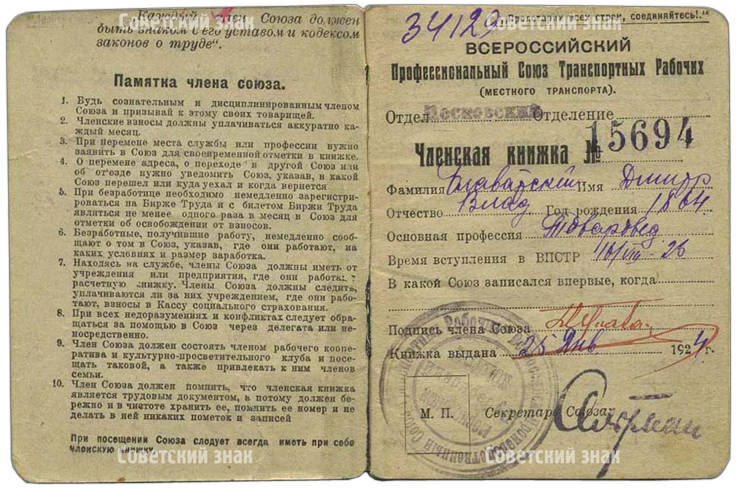 Советский знак
Каждый член Союза должен
быть знаком с его уставом и кодексом
законов о труде".
Памятка члена союза.
1. Будь сознательным и дисциплинированным членом
Союза и призывай к этому своих товарищей.
2. Членские взносы должны уплачиваться аккуратно ка-
ждый месяц.
3. При перемене места службы или профессии нужно
заявить в Союз для своевременной отметки в книжке.
4. О перемене адреса, о переходе в другой Союз или
об от'езде нужно уведомить Союз, указав, в какой
Союз перешел или куда уехал и когда вернется
5. При безработице необходимо немедленно зарегистри-
роваться на Бирже Труда и с билетом Биржи Труда
являться не менее одного раза в месяц в Союз для
отметки об освобождении от взносов.
6. Безработные, получившие работу, немедленно сооб-
щают о том в Союз, указав, где они работают, на
каких условиях и размер заработка.
7. Находясь на службе, члены Союза должны иметь от
учреждения или предприятия, где они работа,
расчетную книжку. Члены Союза должны следить,
уплачиваются ли за них учреждением, где они рабо-
тают, взносы в Кассу социального страхования.
8. При всех недоразумениях и конфликтах следует обра-
щаться за помощью в Союз через делегата или не-
посредственно.
9. Член Союза должен состоять членом рабочего кооператив
а и культурно-просветительного клуба и посе-
щать таковой, а также привлекать к ним членов
семьи.
10. Член Союза должен помнить, что членская книжка
является трудовым документом, а потому должен бе-
режно и в чистоте хранить ее, помнить ее номер и не
делать в ней никаких пометок и записей
При посещении Союза следует всегда иметь при себе
членскую книжку.
Советский знак
Советский знак
34129
„Пролетарии всех стран, соединяйтесь!."
ВСЕРОССИЙСКИЙ
Профессиональный Союз Транспортных Рабочих
(МЕСТНОГО ТРАНСПОРТА).
Отдел Московский Отделение
Членская книжка № 15694
Фамилия Имя Дмитр
Отчество Влад Год рождения
Основная профессия Товаровед
Время вступления в ВПСТР
В какой Союз записался впервые, когда
Подпись члена Союза
Книжка выдана 25 Янв 1924 г.
М. П. Секретарь Союза
Советский знак